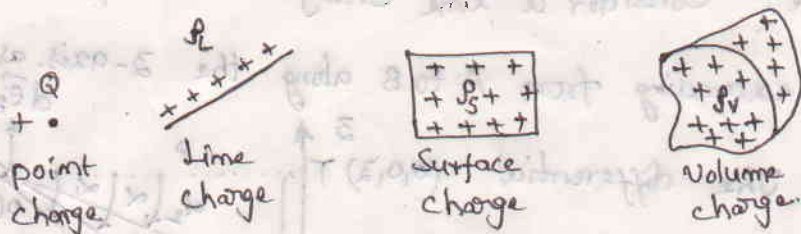 Q
+ •
point
charge
ρL
+ + + + +
Line
charge
+ + +
+ ρS + +
+ + + +
Surface
charge
+ + + + + + +
ρv
+ + + + + + +
Volume
charge.